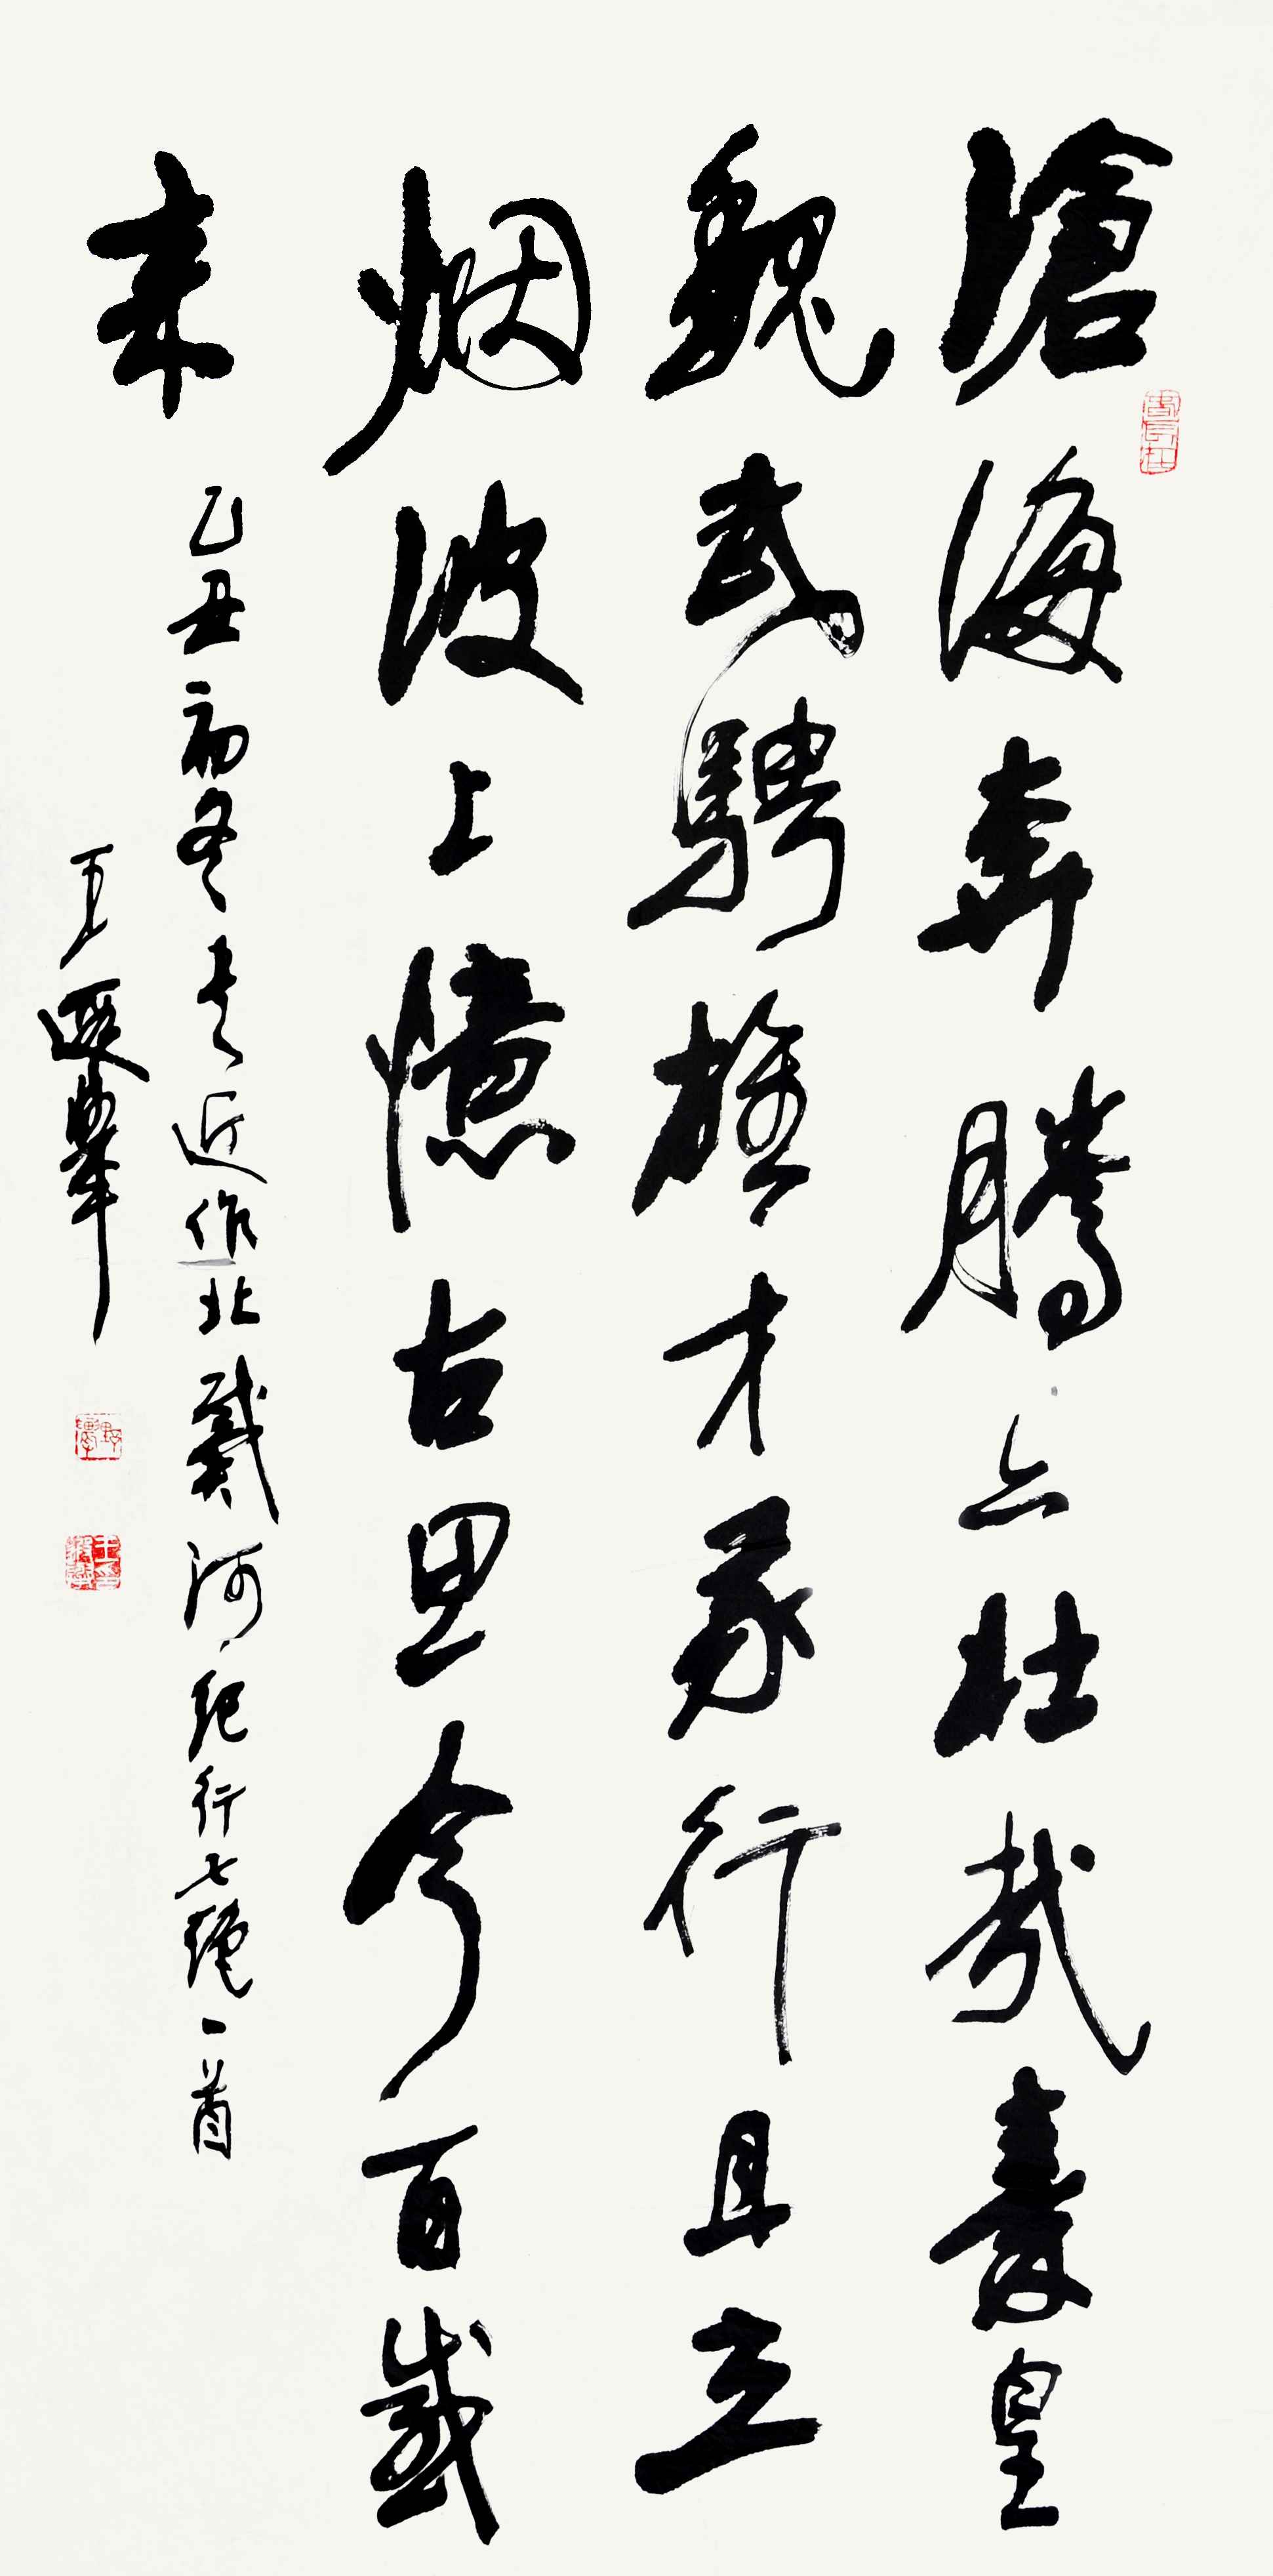 滄海奔騰亦壯哉秦皇
魏武騁雄才我行且立
烟波上憶古思今百感
來
乙丑初冬書近作北戴河紀行七絕一首
王遐舉